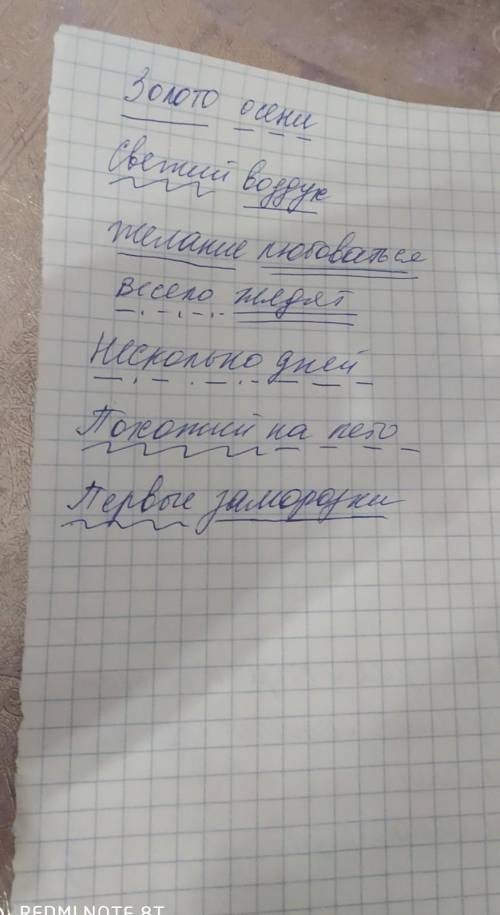 Золото осени
Свежий воздух
желание любоваться
весело
Несколько дней
Похожий на лето
Первые заморозки
REDMI NOTE 8T